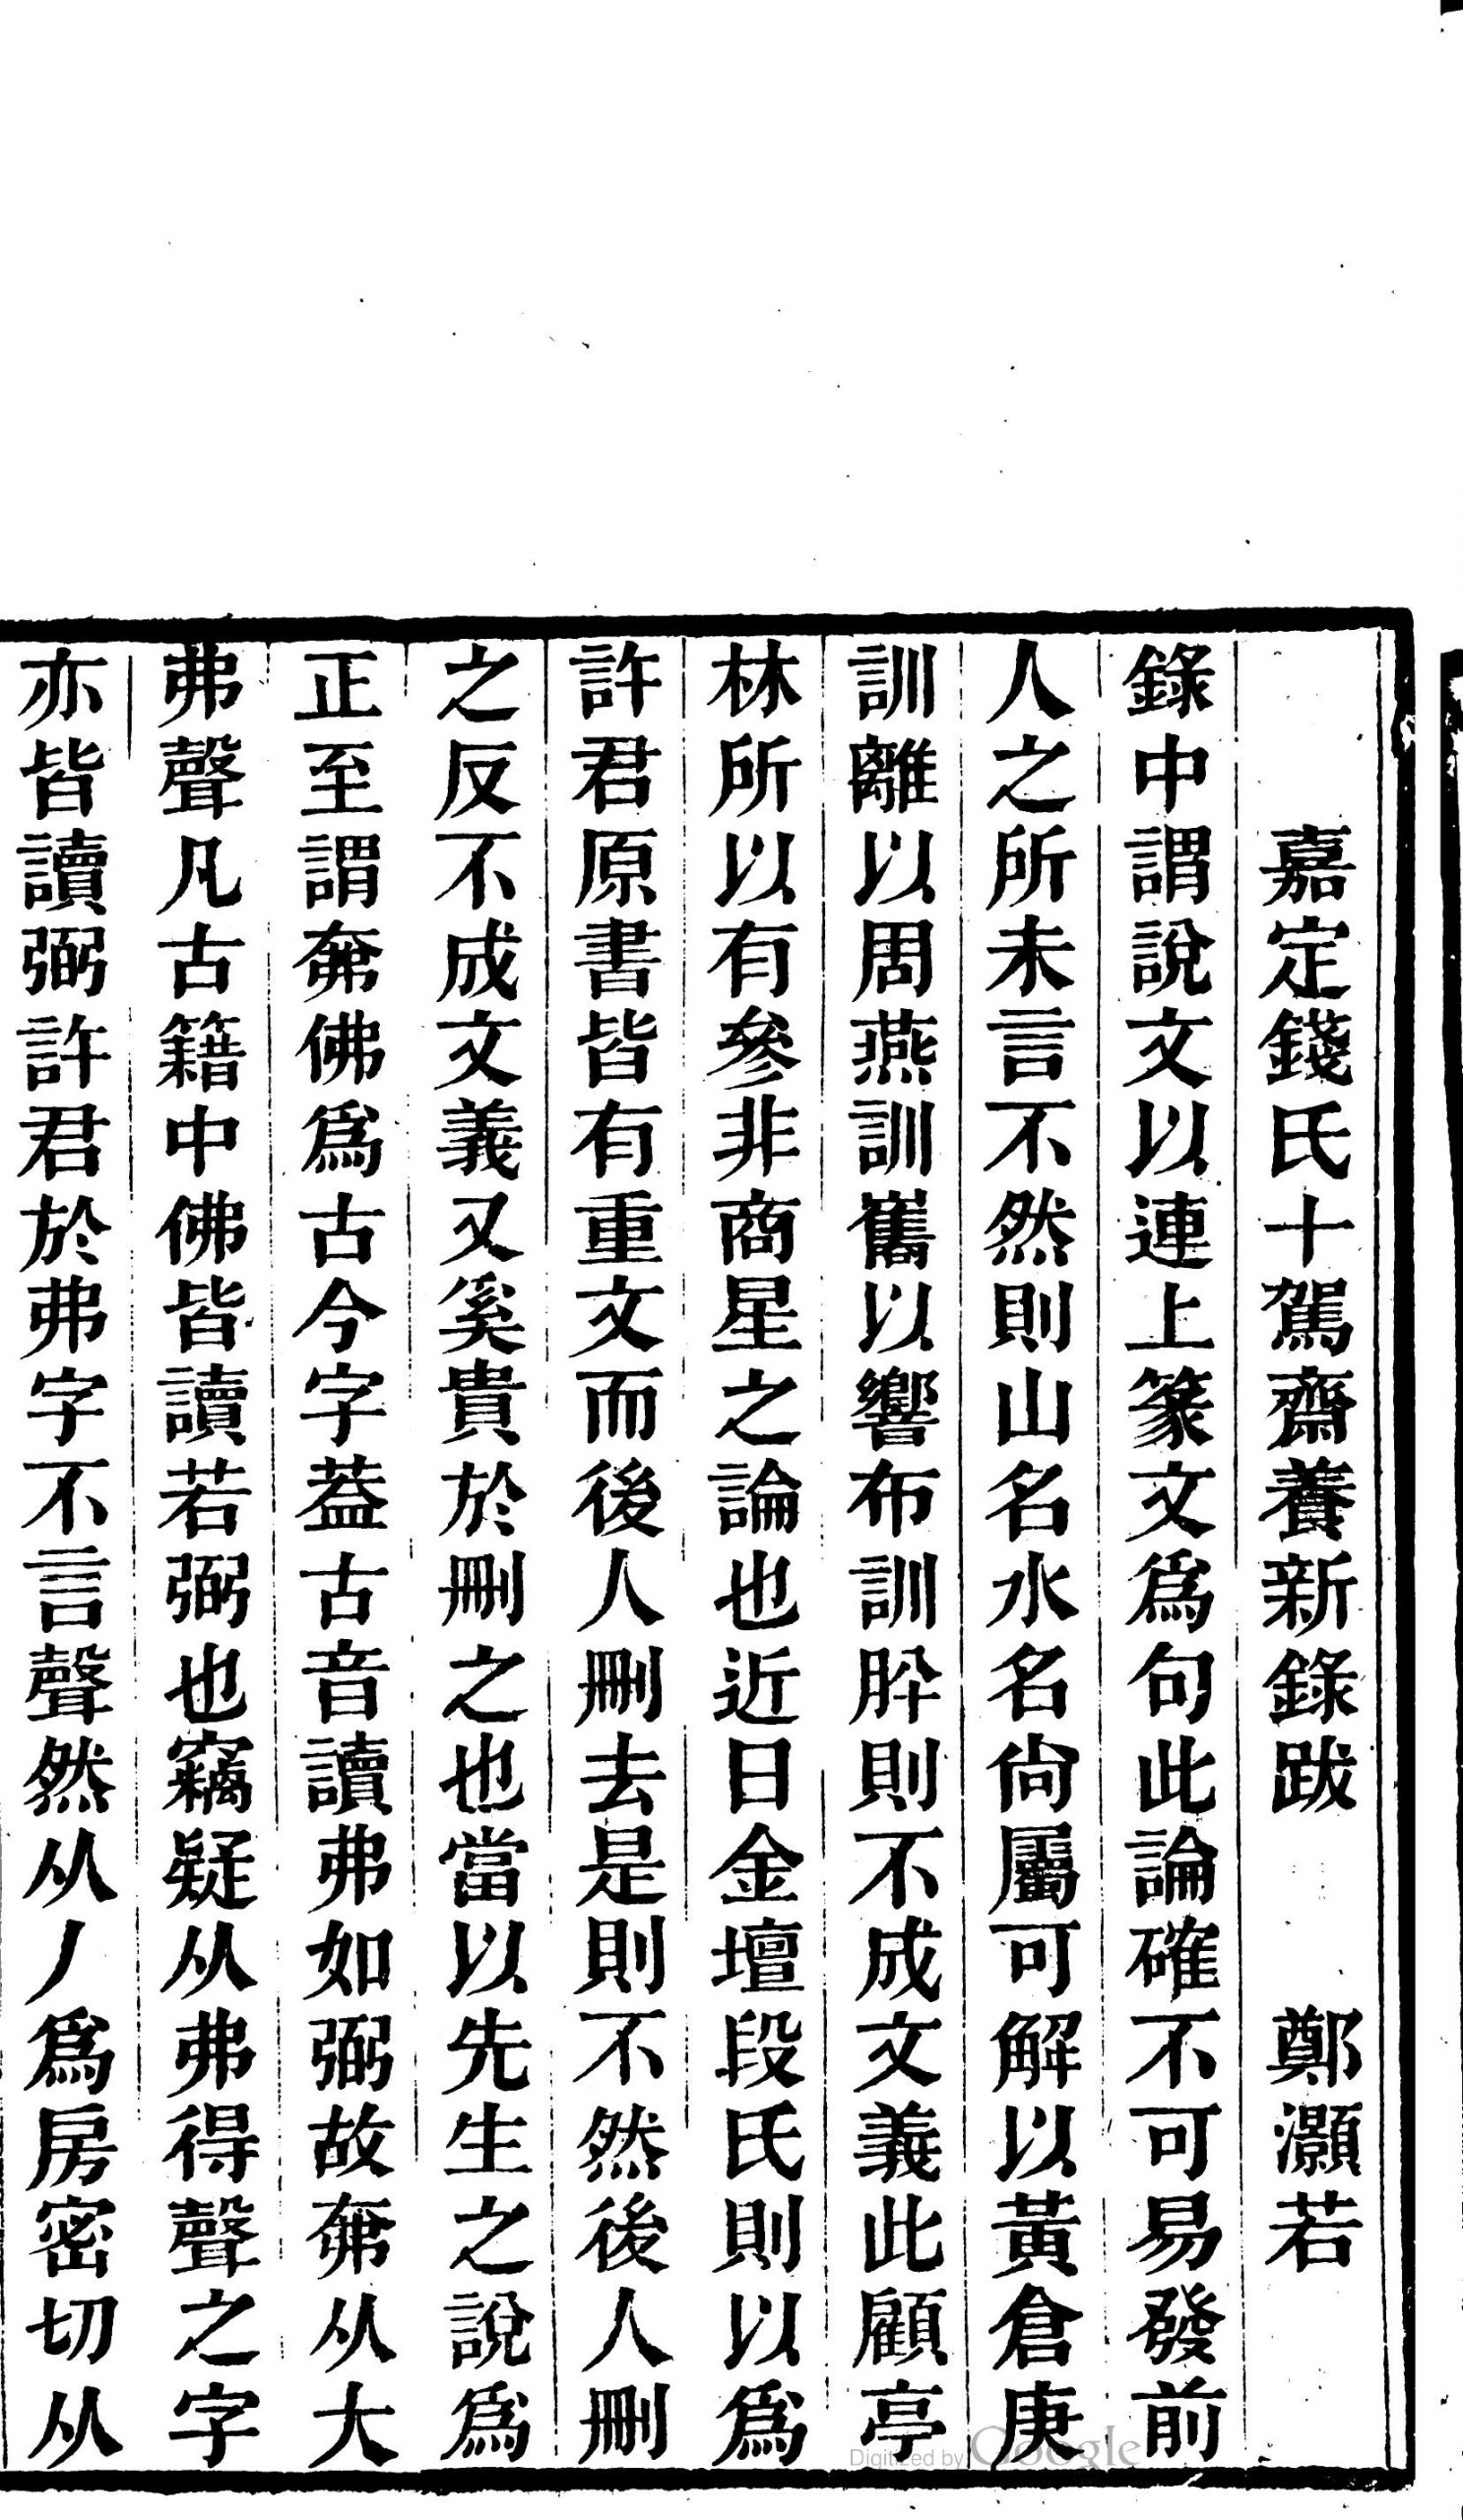 嘉定錢氏十駕齋養新錄跋　鄭灝若
錄中謂說文以連上篆文爲句此論確不可易發前
人之所未言不然則山名水名尙屬可解以黃倉庚
訓離以周燕訓巂以響布訓肸則不成文義此顧亭
林所以有參非商星之論也近日金壇段氏則以爲
許君原書皆有重文而後人刪去是則不然後人刪
之反不成文義又奚貴於刪之也當以先生之說爲
正至謂奫佛爲古今字葢古音讀弗如弼故𡘾从大
弗聲凡古籍中佛皆讀若弼也竊疑从弗得聲之字
亦皆讀弼許君於弗字不言聲然从丿爲房密切从
Digitized by Google